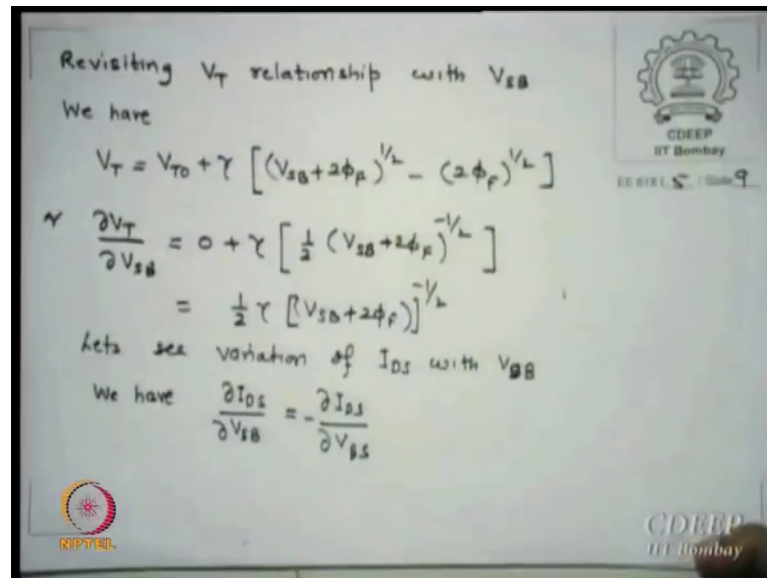 Revisiting V_T relationship with V_SB
We have
V_T = V_T0 + γ [(V_SB + 2φ_F)^1/2 - (2φ_F)^1/2]
∂V_T/∂V_SB = 0 + γ [1/2 (V_SB + 2φ_F)^-1/2]
= 1/2 γ [V_SB + 2φ_F)]^-1/2
Lets see variation of I_DS with V_BB
We have ∂I_DS/∂V_SB = - ∂I_DS/∂V_BS
CDEEP
IIT Bombay
EE 618 L 5 / Slide 9
NPTEL
CDEEP
IIT Bombay